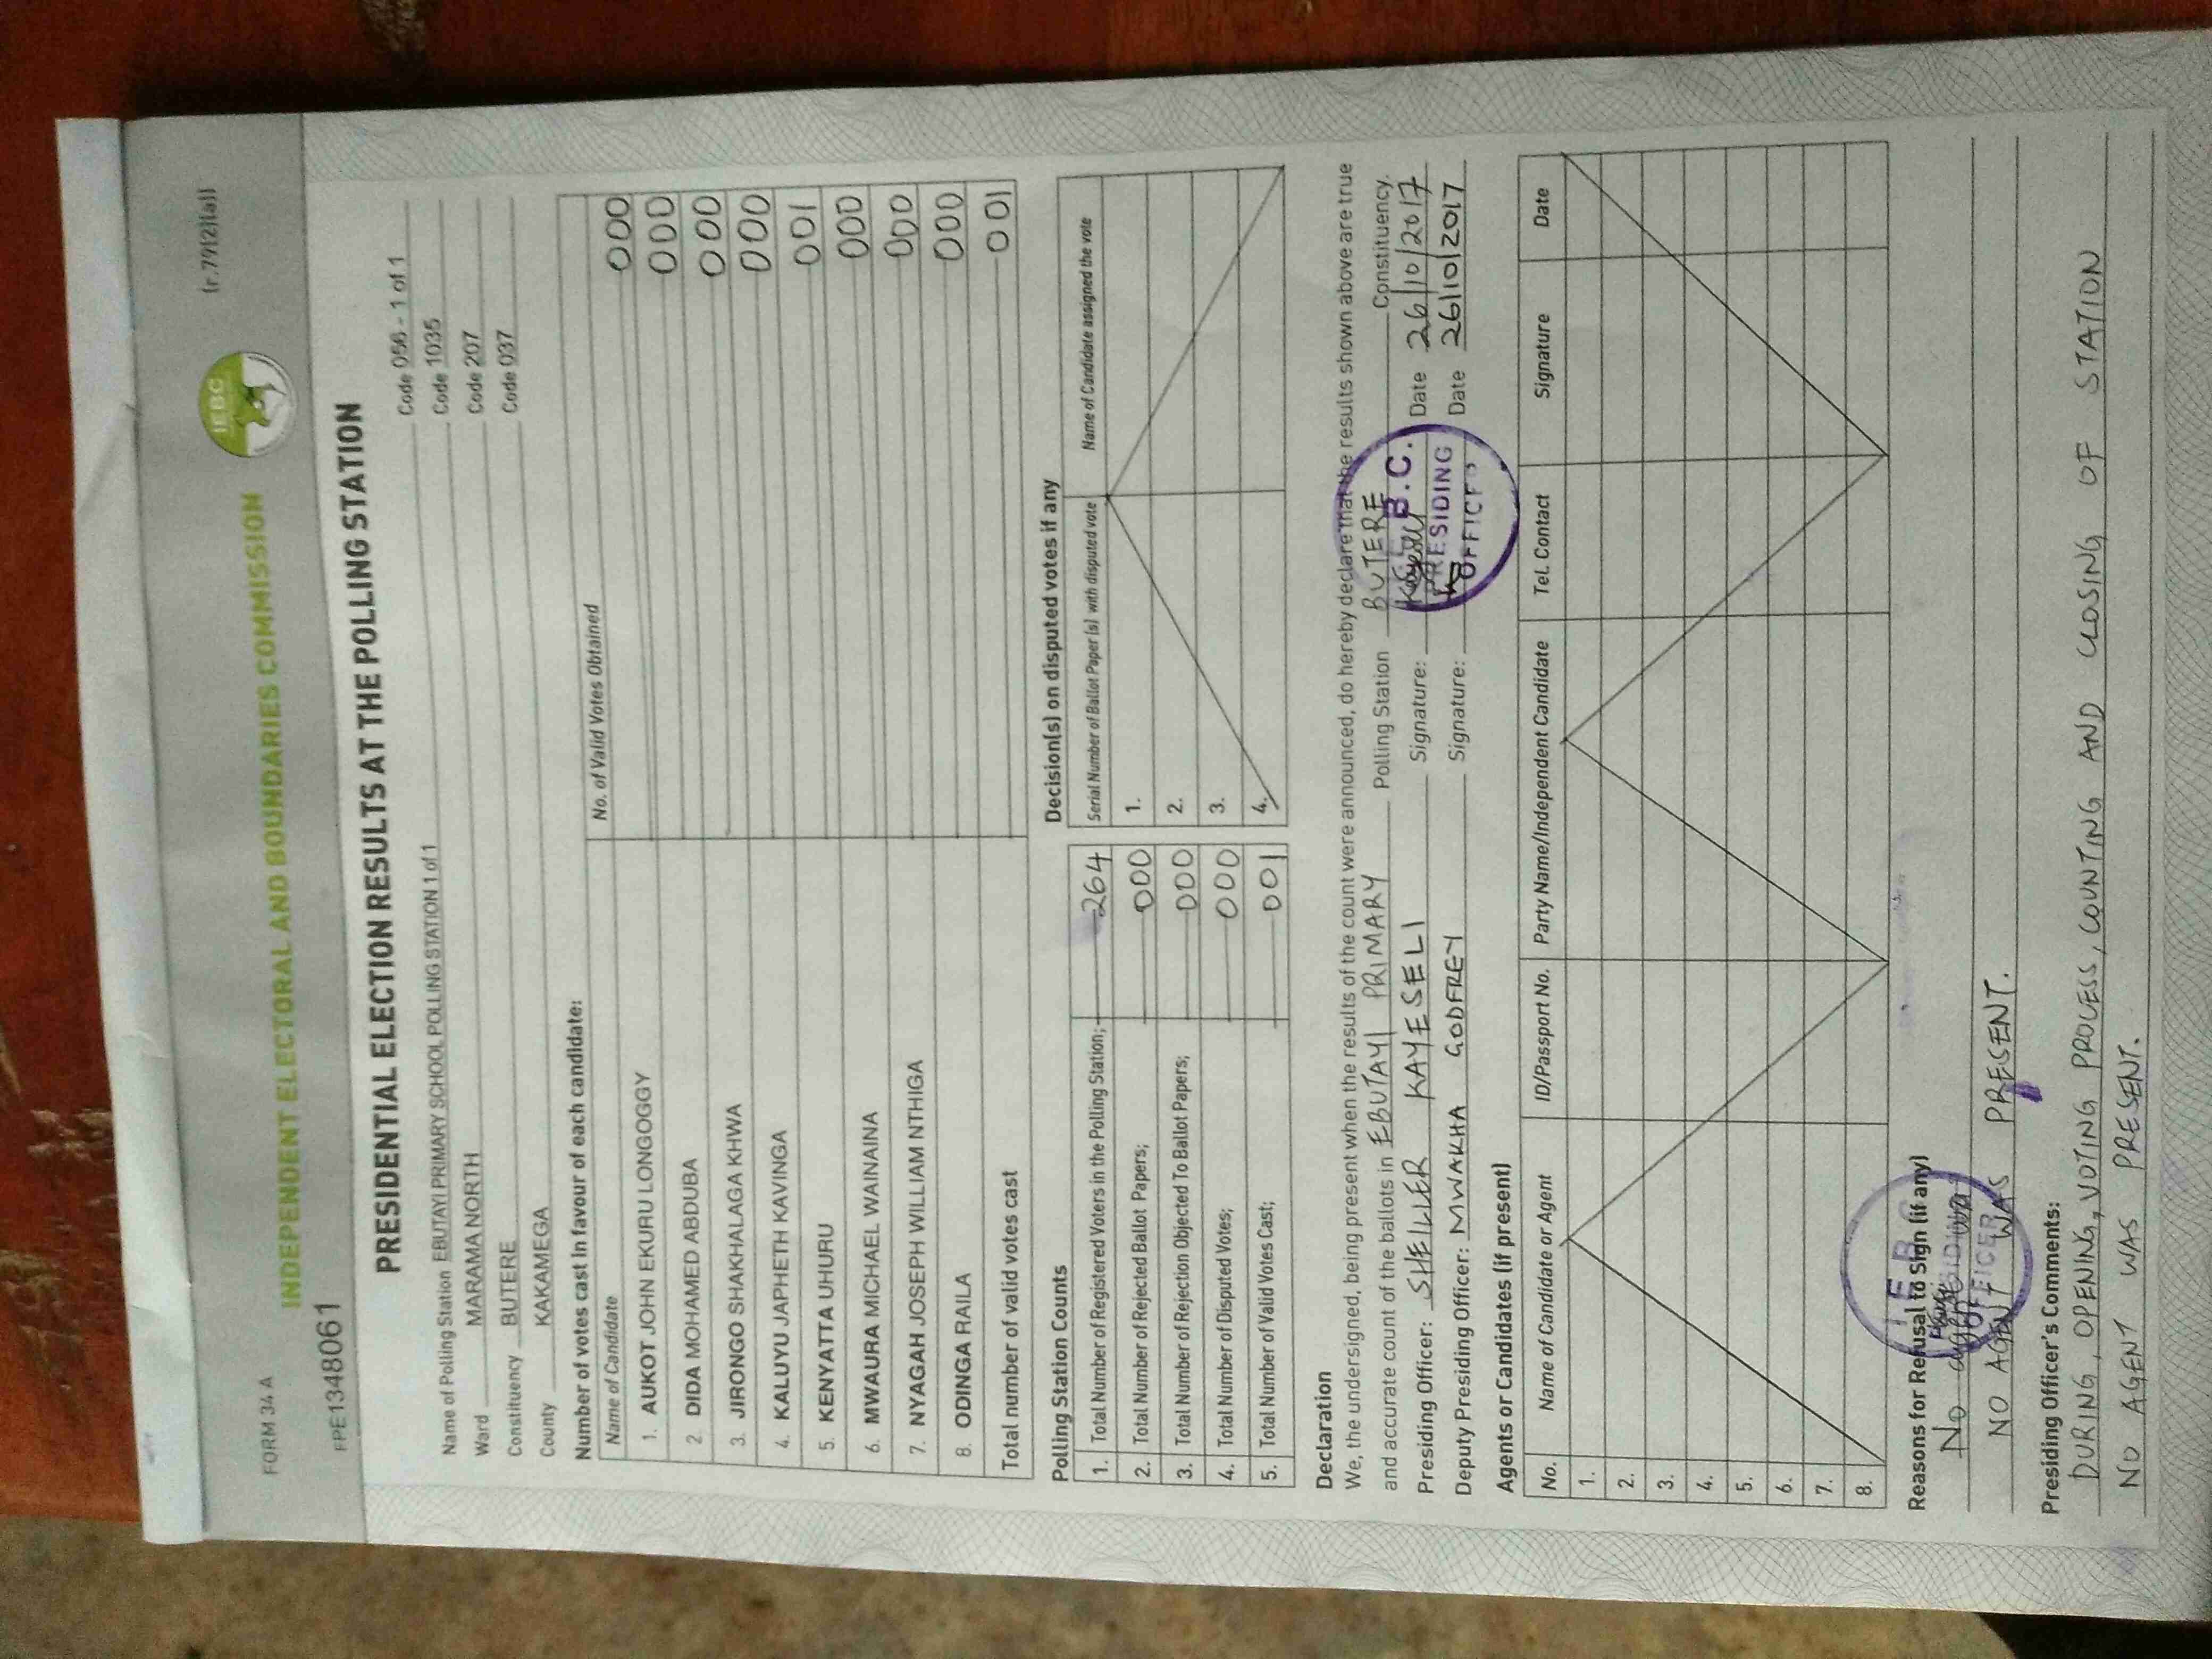 FORM 34 A
(r.79(2)(a))
IEBC
INDEPENDENT ELECTORAL AND BOUNDARIES COMMISSION
FPE1348061
PRESIDENTIAL ELECTION RESULTS AT THE POLLING STATION
Name of Polling Station EBUTAYI PRIMARY SCHOOL POLLING STATION 1 of 1 Code 056 - 1 of 1
Ward MARAMA NORTH Code 1035
Constituency BUTERE Code 207
County KAKAMEGA Code 037
Number of votes cast in favour of each candidate:
Name of Candidate No. of Valid Votes Obtained
000
1. AUKOT JOHN EKURU LONGOGGY 000
2 DIDA MOHAMED ABDUBA 000
3. JIRONGO SHAKHALAGA KHWA 000
4. KALUYU JAPHETH KAVINGA 001
5. KENYATTA UHURU 000
6. MWAURA MICHAEL WAINAINA 000
7. NYAGAH JOSEPH WILLIAM NTHIGA 000
8. ODINGA RAILA
Total number of valid votes cast 001
Polling Station Counts
1. Total Number of Registered Voters in the Polling Station; 264
2. Total Number of Rejected Ballot Papers; 000
3. Total Number of Rejection Objected To Ballot Papers; 000
4. Total Number of Disputed Votes; 000
5. Total Number of Valid Votes Cast; 001
Decision(s) on disputed votes if any
Serial Number of Ballot Paper (s) with disputed vote Name of Candidate assigned the vote
1.
2.
3.
4.
Declaration
We, the undersigned, being present when the results of the count were announced, do hereby declare that the results shown above are true
and accurate count of the ballots in EBUTAYI PRIMARY Polling Station BUTERE Constituency.
Presiding Officer: SHEILLER KAYESELI Signature: Date 26/10/2017
Deputy Presiding Officer: MWAKHA GODFREY Signature: Date 26/10/2017
B.C.
PRESIDING
OFFICER
Agents or Candidates (if present)
No. Name of Candidate or Agent ID/Passport No. Party Name/Independent Candidate Tel. Contact Signature Date
1.
2.
3.
4.
5.
6.
7.
8.
Reasons for Refusal to Sign (if any)
No
NO AGENT WAS PRESENT.
Presiding Officer's Comments:
DURING, OPENING, VOTING PROCESS, COUNTING AND CLOSING OF STATION
NO AGENT WAS PRESENT.